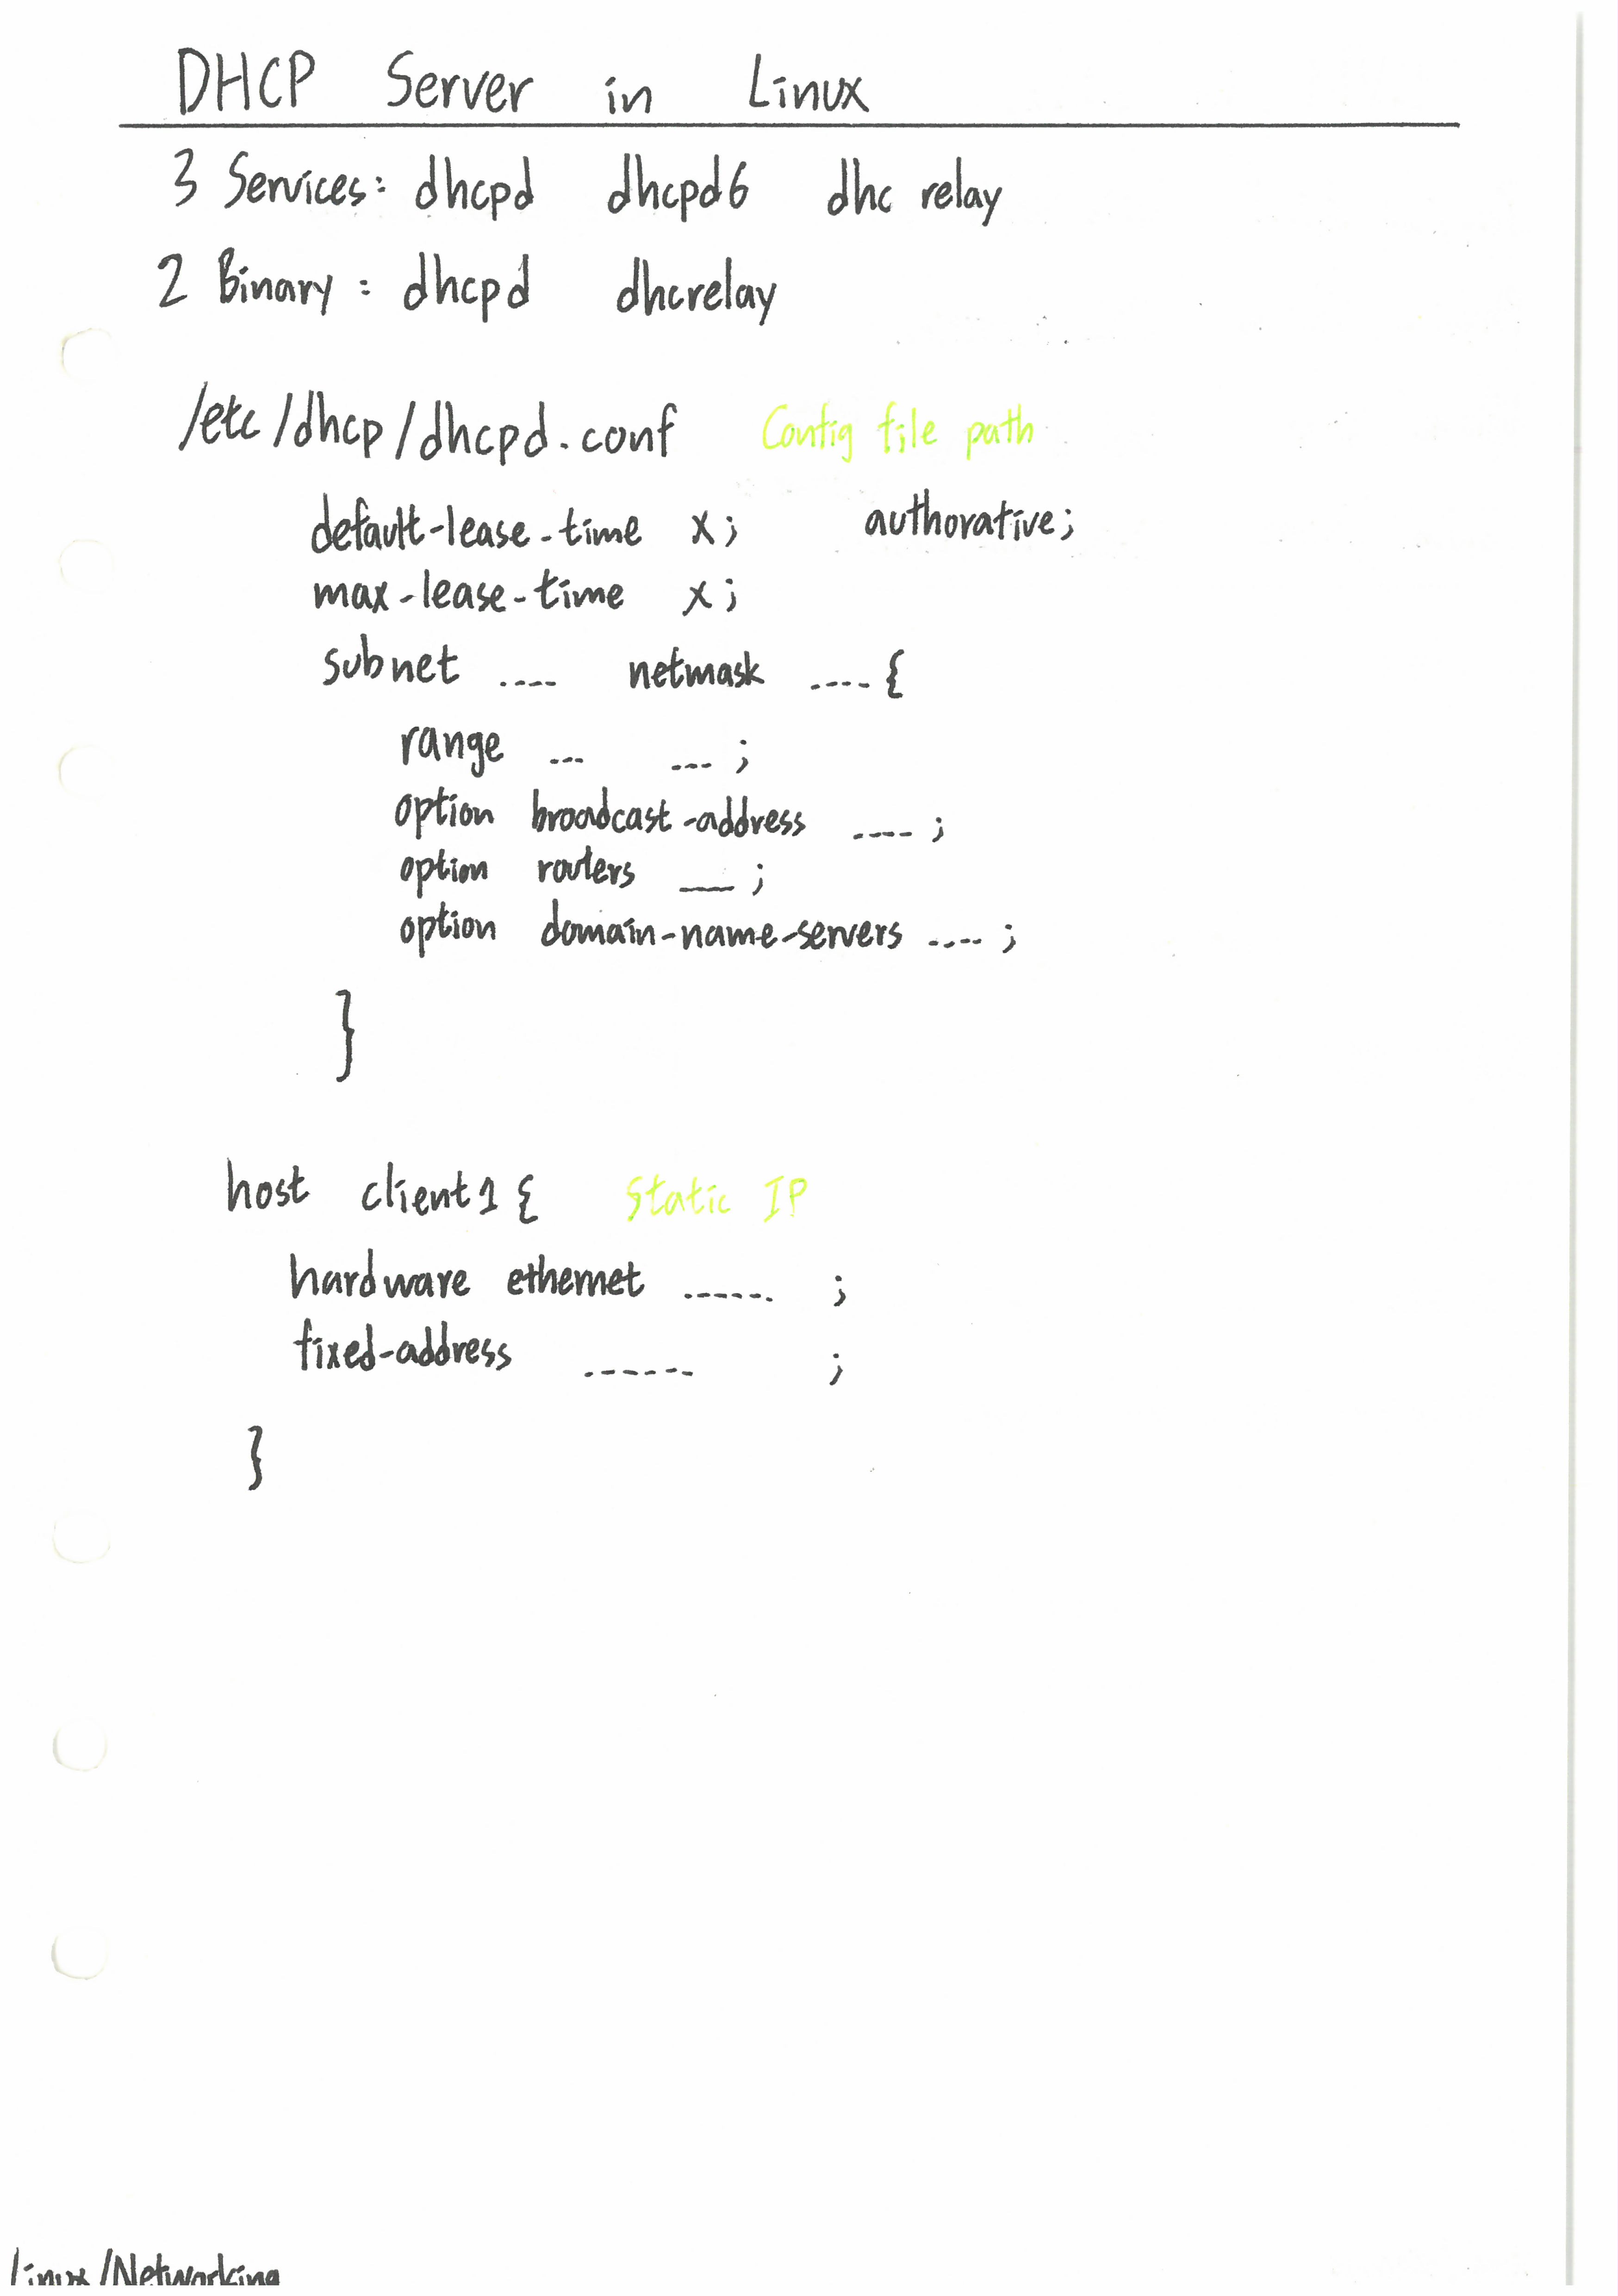 DHCP Server in Linux
3 Services: dhcpd dhcpd6 dhc relay
2 Binary: dhcpd dhcrelay
/etc/dhcp/dhcpd.conf Config file path
default-lease-time x; authorative;
max-lease-time x;
subnet .... netmask .... {
range ... ... ;
option broadcast-address .... ;
option routers __ ;
option domain-name-servers .... ;
}
host client1 { Static IP
hardware ethernet ...... ;
fixed-address ...... ;
}
Linux/Networking